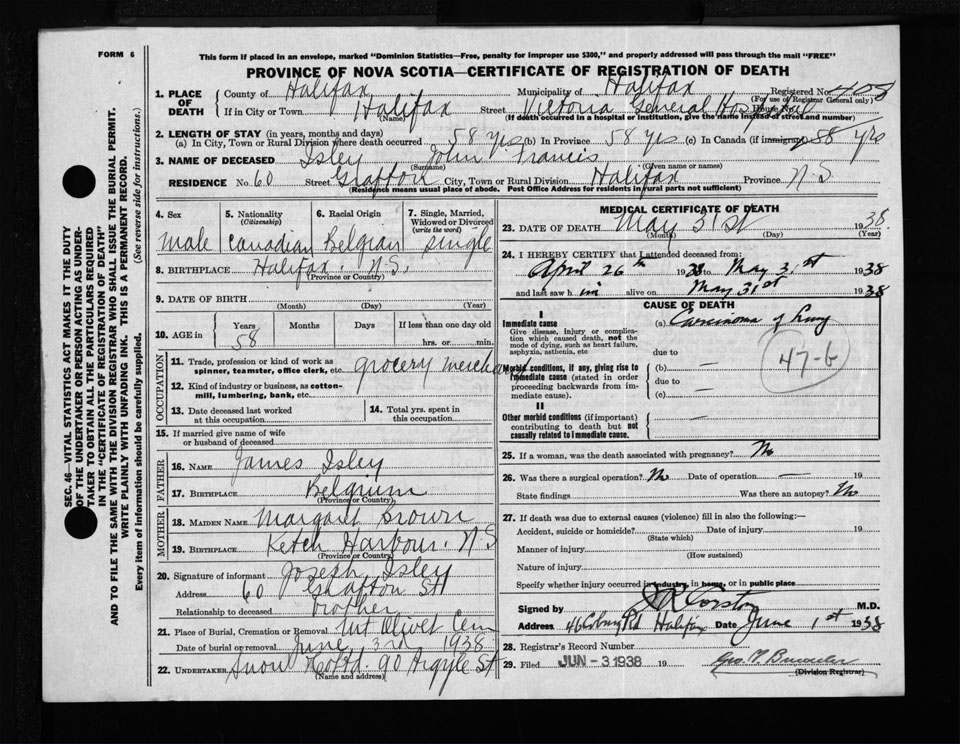 FORM 6
This form if placed in an envelope, marked "Dominion Statistics—Free, penalty for improper use $300," and properly addressed will pass through the mail "FREE"
PROVINCE OF NOVA SCOTIA—CERTIFICATE OF REGISTRATION OF DEATH
SEC. 46—VITAL STATISTICS ACT MAKES IT THE DUTY
OF THE UNDERTAKER OR PERSON ACTING AS UNDER-
TAKER TO OBTAIN ALL THE PARTICULARS REQUIRED
IN THE "CERTIFICATE OF REGISTRATION OF DEATH"
AND TO FILE THE SAME WITH THE DIVISION REGISTRAR WHO SHALL ISSUE THE BURIAL PERMIT.
WRITE PLAINLY WITH UNFADING INK. THIS IS A PERMANENT RECORD.
Every item of information should be carefully supplied. (See reverse side for instructions.)
1. PLACE OF DEATH County of Halifax Municipality of Halifax Registered No. 408
(For use of Registrar General only)
If in City or Town Halifax Street Victoria General Hospital House No.
(Name) (If death occurred in a hospital or institution, give the name instead of street and number)
2. LENGTH OF STAY (in years, months and days)
(a) In City, Town or Rural Division where death occurred 58 yrs (b) In Province 58 yrs (c) In Canada (if immigrant) 58 yrs
3. NAME OF DECEASED Isley John Francis
(Surname) (Given name or names)
RESIDENCE No. 60 Street Grafton City, Town or Rural Division Halifax Province N.S.
(Residence means usual place of abode. Post Office Address for residents in rural parts not sufficient)
4. Sex 5. Nationality (Citizenship) 6. Racial Origin 7. Single, Married, Widowed or Divorced (write the word)
male Canadian Belgian single
8. BIRTHPLACE Halifax. N.S.
(Province or Country)
9. DATE OF BIRTH
(Month) (Day) (Year)
10. AGE in Years Months Days If less than one day old
58 hrs. or min.
OCCUPATION
11. Trade, profession or kind of work as spinner, teamster, office clerk, etc. grocery merchant
12. Kind of industry or business, as cotton-mill, lumbering, bank, etc.
13. Date deceased last worked at this occupation 14. Total yrs. spent in this occupation
15. If married give name of wife or husband of deceased
FATHER
16. NAME James Isley
17. BIRTHPLACE Belgium
(Province or Country)
MOTHER
18. MAIDEN NAME Margaret Brown
19. BIRTHPLACE Ketch Harbour. N.S
(Province or Country)
20. Signature of informant Joseph Isley
Address 60 Grafton St
Relationship to deceased brother
21. Place of Burial, Cremation or Removal Mt Olivet Cem
Date of burial or removal June 3rd 1938
22. UNDERTAKER Snow & Co Ltd. 90 Argyle St
(Name and address)
MEDICAL CERTIFICATE OF DEATH
23. DATE OF DEATH May 31st 1938
(Month) (Day) (Year)
24. I HEREBY CERTIFY that I attended deceased from:
April 26th 1938 to May 31st 1938
and last saw him alive on May 31st 1938
CAUSE OF DEATH
I
Immediate cause (a) Carcinoma of Lung
Give disease, injury or complication which caused death, not the mode of dying, such as heart failure, asphyxia, asthenia, etc
due to
47-b
Morbid conditions, if any, giving rise to immediate cause (stated in order proceeding backwards from immediate cause). (b) —
due to
(c)
II
Other morbid conditions (if important) contributing to death but not causally related to immediate cause.
25. If a woman, was the death associated with pregnancy? No
26. Was there a surgical operation? No Date of operation — 19
State findings Was there an autopsy? No
27. If death was due to external causes (violence) fill in also the following:—
Accident, suicide or homicide? Date of injury 19
(State which)
Manner of injury
(How sustained)
Nature of injury
Specify whether injury occurred in industry, in home, or in public place
Signed by J R Corston M.D.
Address 46 Coburg Rd Halifax Date June 1st 1938
28. Registrar's Record Number
29. Filed JUN - 3 1938 19
(Division Registrar)